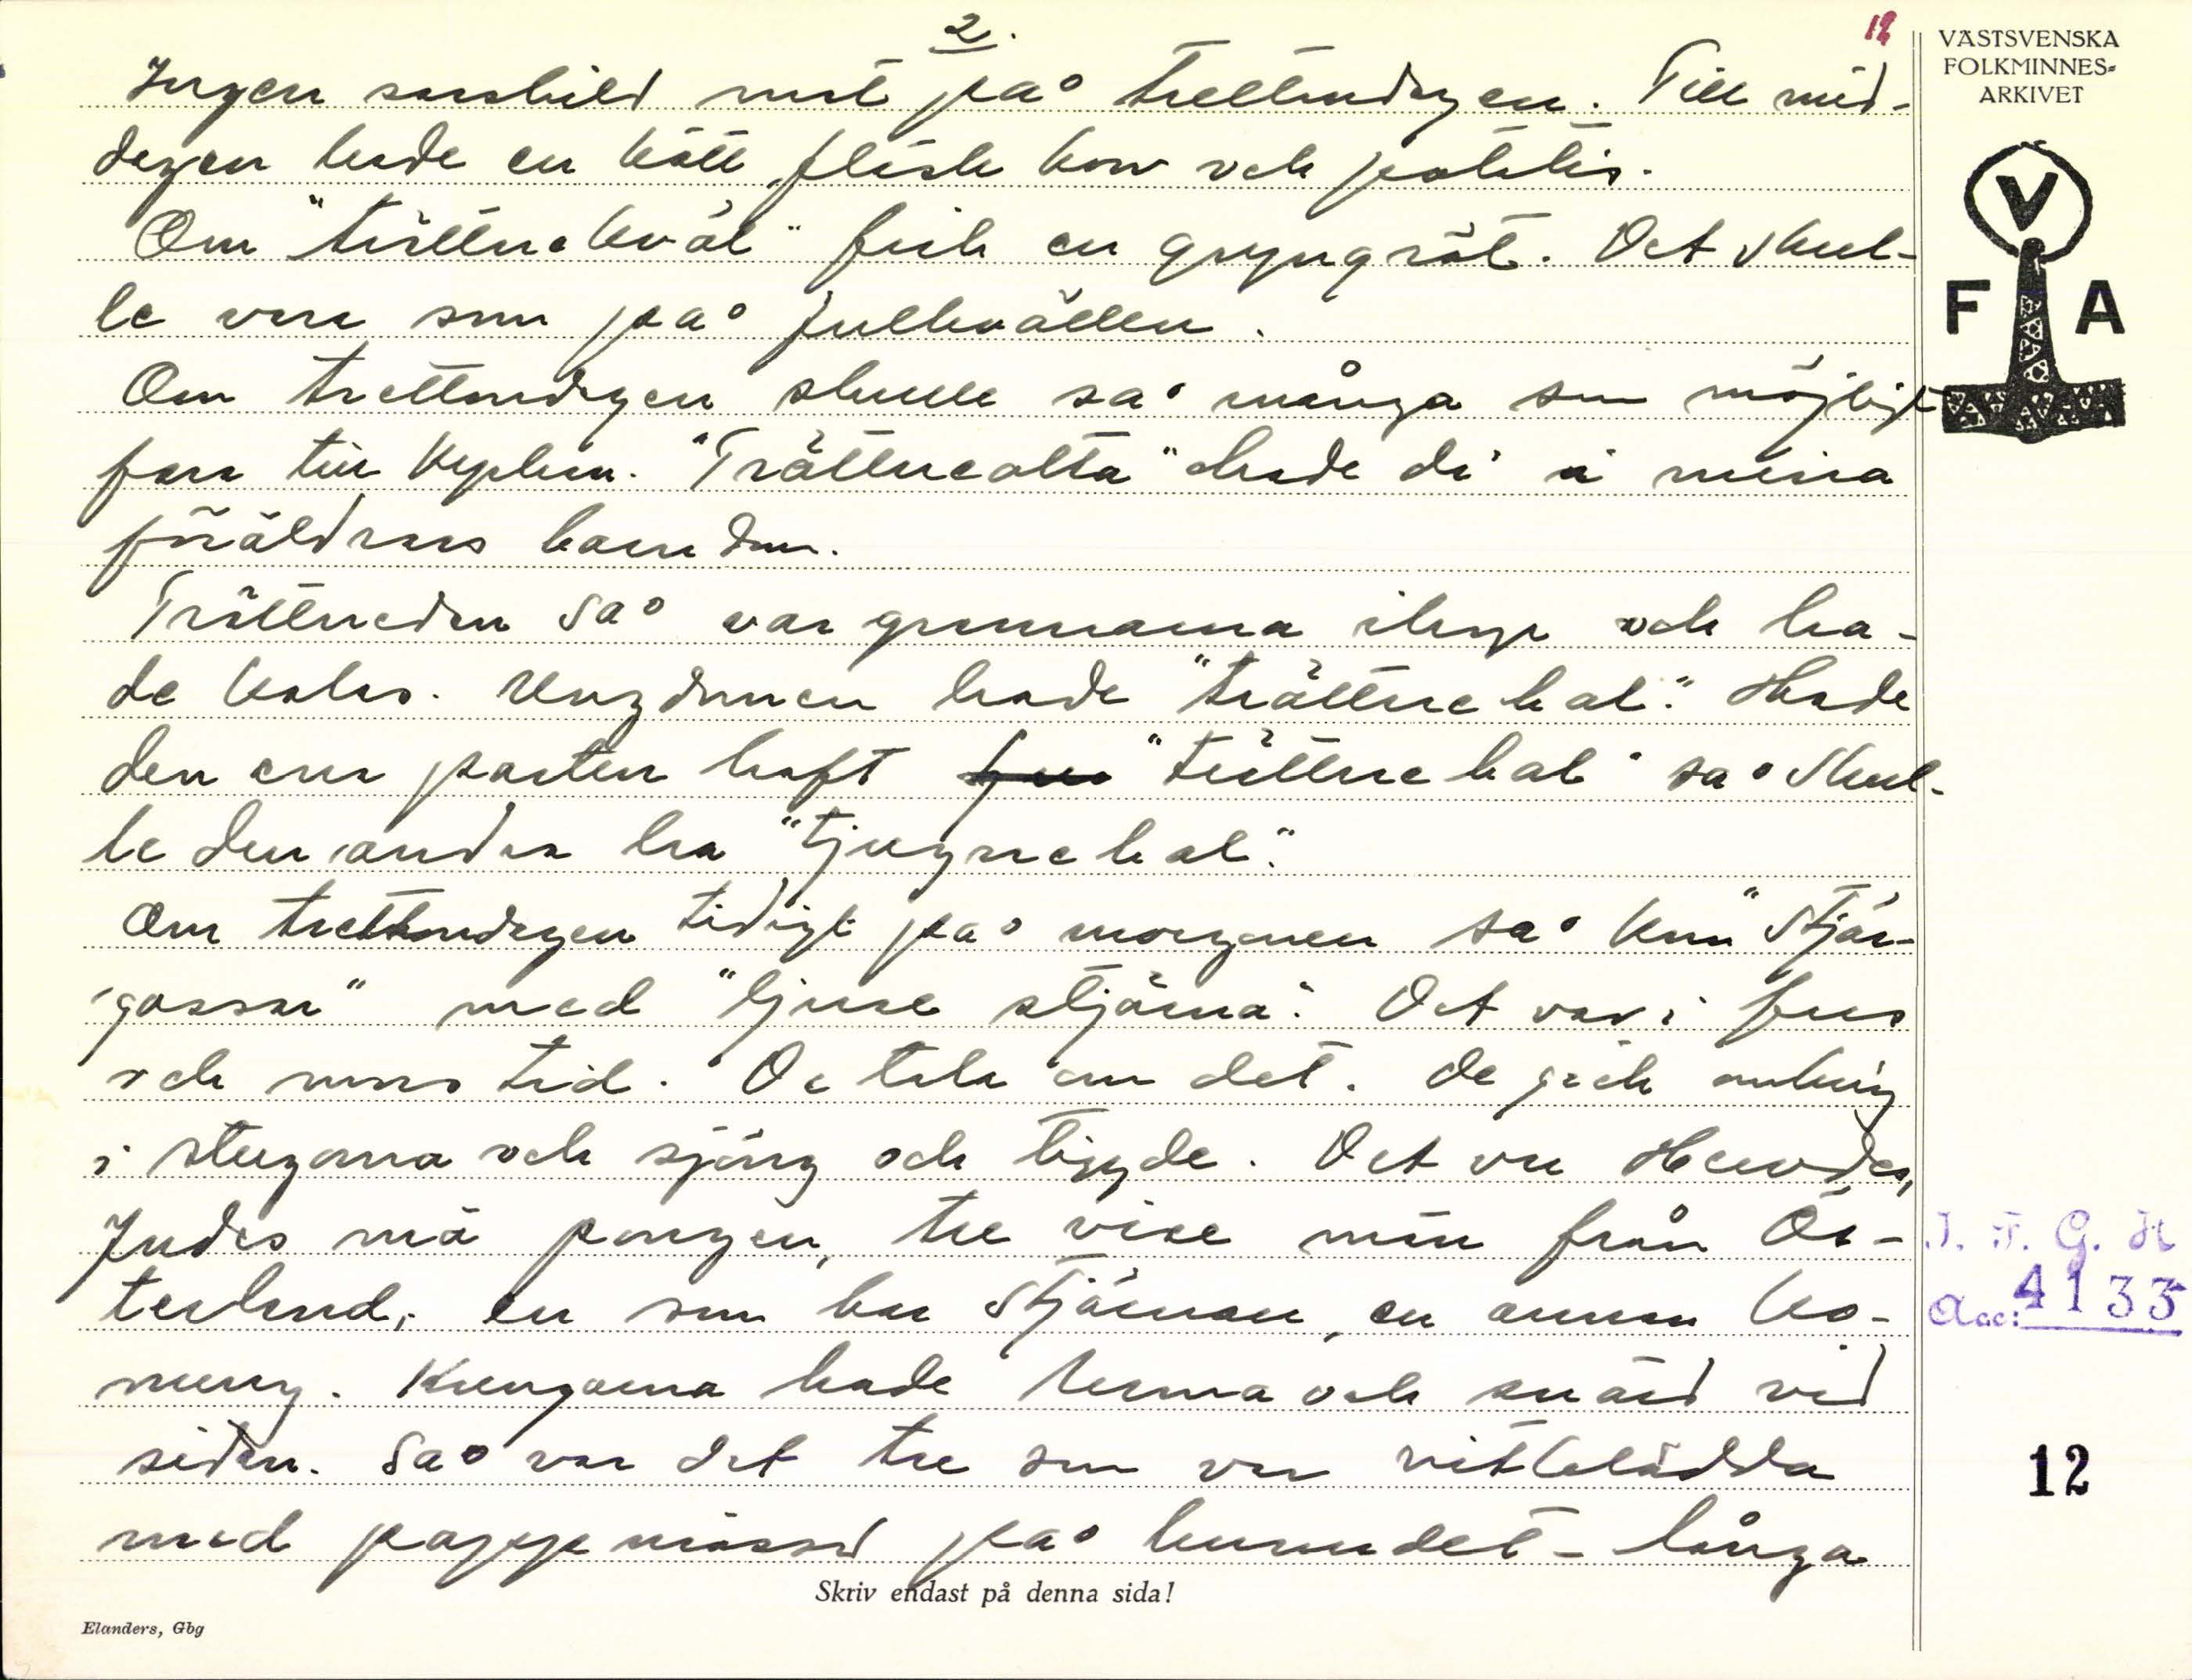 2.
12
VÄSTSVENSKA
FOLKMINNES-
ARKIVET
V
F A
Ingen särskild mat på trettondagen. Till mid-
dagen hade en kött, fläsk korv och potatis.
Om "trättnekväl" fick en gryngröt. Det skul-
le vara som på julkvällen.
Om trettondagen skulle så många som möjligt
fara till kyrkan. "Trätneotta" hade di i mina
föräldrars barndom.
Trättnedan så var grannarna ihop och ha-
de kalas. Ungdomen hade "trättnebal". Hade
den ena parten haft "trättnebal" så skul-
le den andra ha "tjugnebal".
Om trettondagen tidigt på morgonen så kom "Stjär-
gossar" med "ljuse stjärna". Det var i
och mors tid. De tala om det. De gick omkring
i stugorna och sjöng och tiggde. Det var Herodes,
Judas mä pungen, tre vise män från Ös-
terland, en som bar Stjärnan, en annan ko-
nung. Kungarna hade krona och svärd vid
sidan. Så var det tre som var vitklädda
med pappmössor på huvudet - långa
Skriv endast på denna sida!
Elanders, Gbg
I. F. G. H
Acc: 4133
12